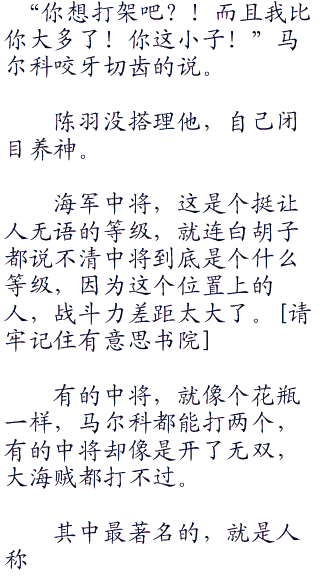 “你想打架吧？！而且我比
你大多了！你这小子！”马
尔科咬牙切齿的说。
陈羽没搭理他，自己闭
目养神。
海军中将，这是个挺让
人无语的等级，就连白胡子
都说不清中将到底是个什么
等级，因为这个位置上的
人，战斗力差距太大了。[请
牢记住有意思书院]
有的中将，就像个花瓶
一样，马尔科都能打两个，
有的中将却像是开了无双，
大海贼都打不过。
其中最著名的，就是人
称